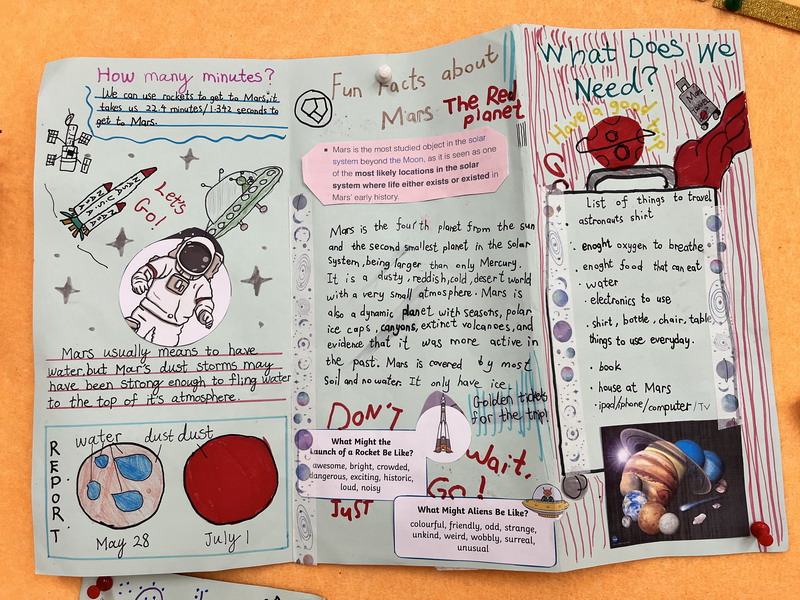 How many minutes?
We can use rockets to get to Mars, it
takes us 22.4 minutes/1.342 seconds to
get to Mars.
Let's
Go!
Mars usually means to have
water, but Mars's dust storms may
have been strong enough to fling water
to the top of it's atmosphere.
REPORT
water dust dust
May 28
July 1
Fun Facts about
Mars The Red
planet
Mars is the most studied object in the solar
system beyond the Moon, as it is seen as one
of the most likely locations in the solar
system where life either exists or existed in
Mars' early history.
Mars is the fourth planet from the sun
and the second smallest planet in the Solar
System, being larger than only Mercury.
It is a dusty, reddish, cold, desert world
with a very small atmosphere. Mars is
also a dynamic planet with seasons, polar
ice caps, canyons, extinct volcanoes, and
evidence that it was more active in
the past. Mars is covered by most
Soil and no water. It only have ice.
Golden tickets
for the trip!
DON'T
Wait.
JUST
Go!
What Might the
Launch of a Rocket Be Like?
awesome, bright, crowded,
dangerous, exciting, historic,
loud, noisy
What Might Aliens Be Like?
colourful, friendly, odd, strange,
unkind, weird, wobbly, surreal,
unusual
What Does We
Need?
Have a good trip
List of things to travel
astronauts shirt
enoght oxygen to breathe
enoght food that can eat
water
electronics to use
shirt, bottle, chair, table
things to use everyday.
book
house at Mars
ipad/iphone/computer/TV